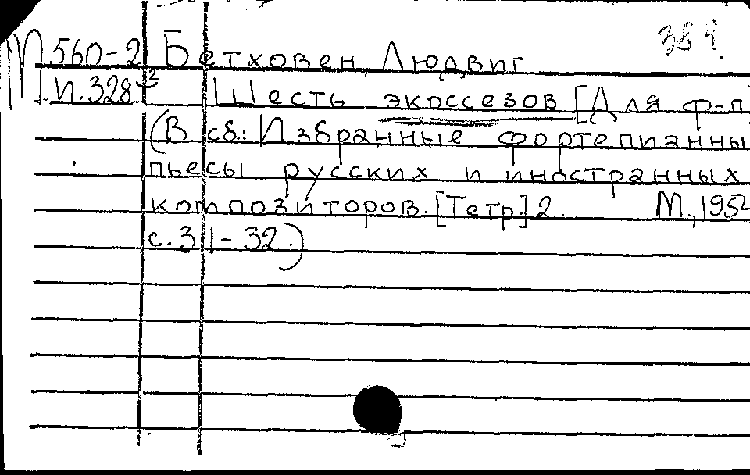 384.
М 560-2 Бетховен, Людвиг
П.328 Шесть экоссезов [Для ф-п
(В сб: Избранные фортепианны
пьесы русских и иностранных
композиторов. [Тетр.] 2. М., 195
с. 31-32.)